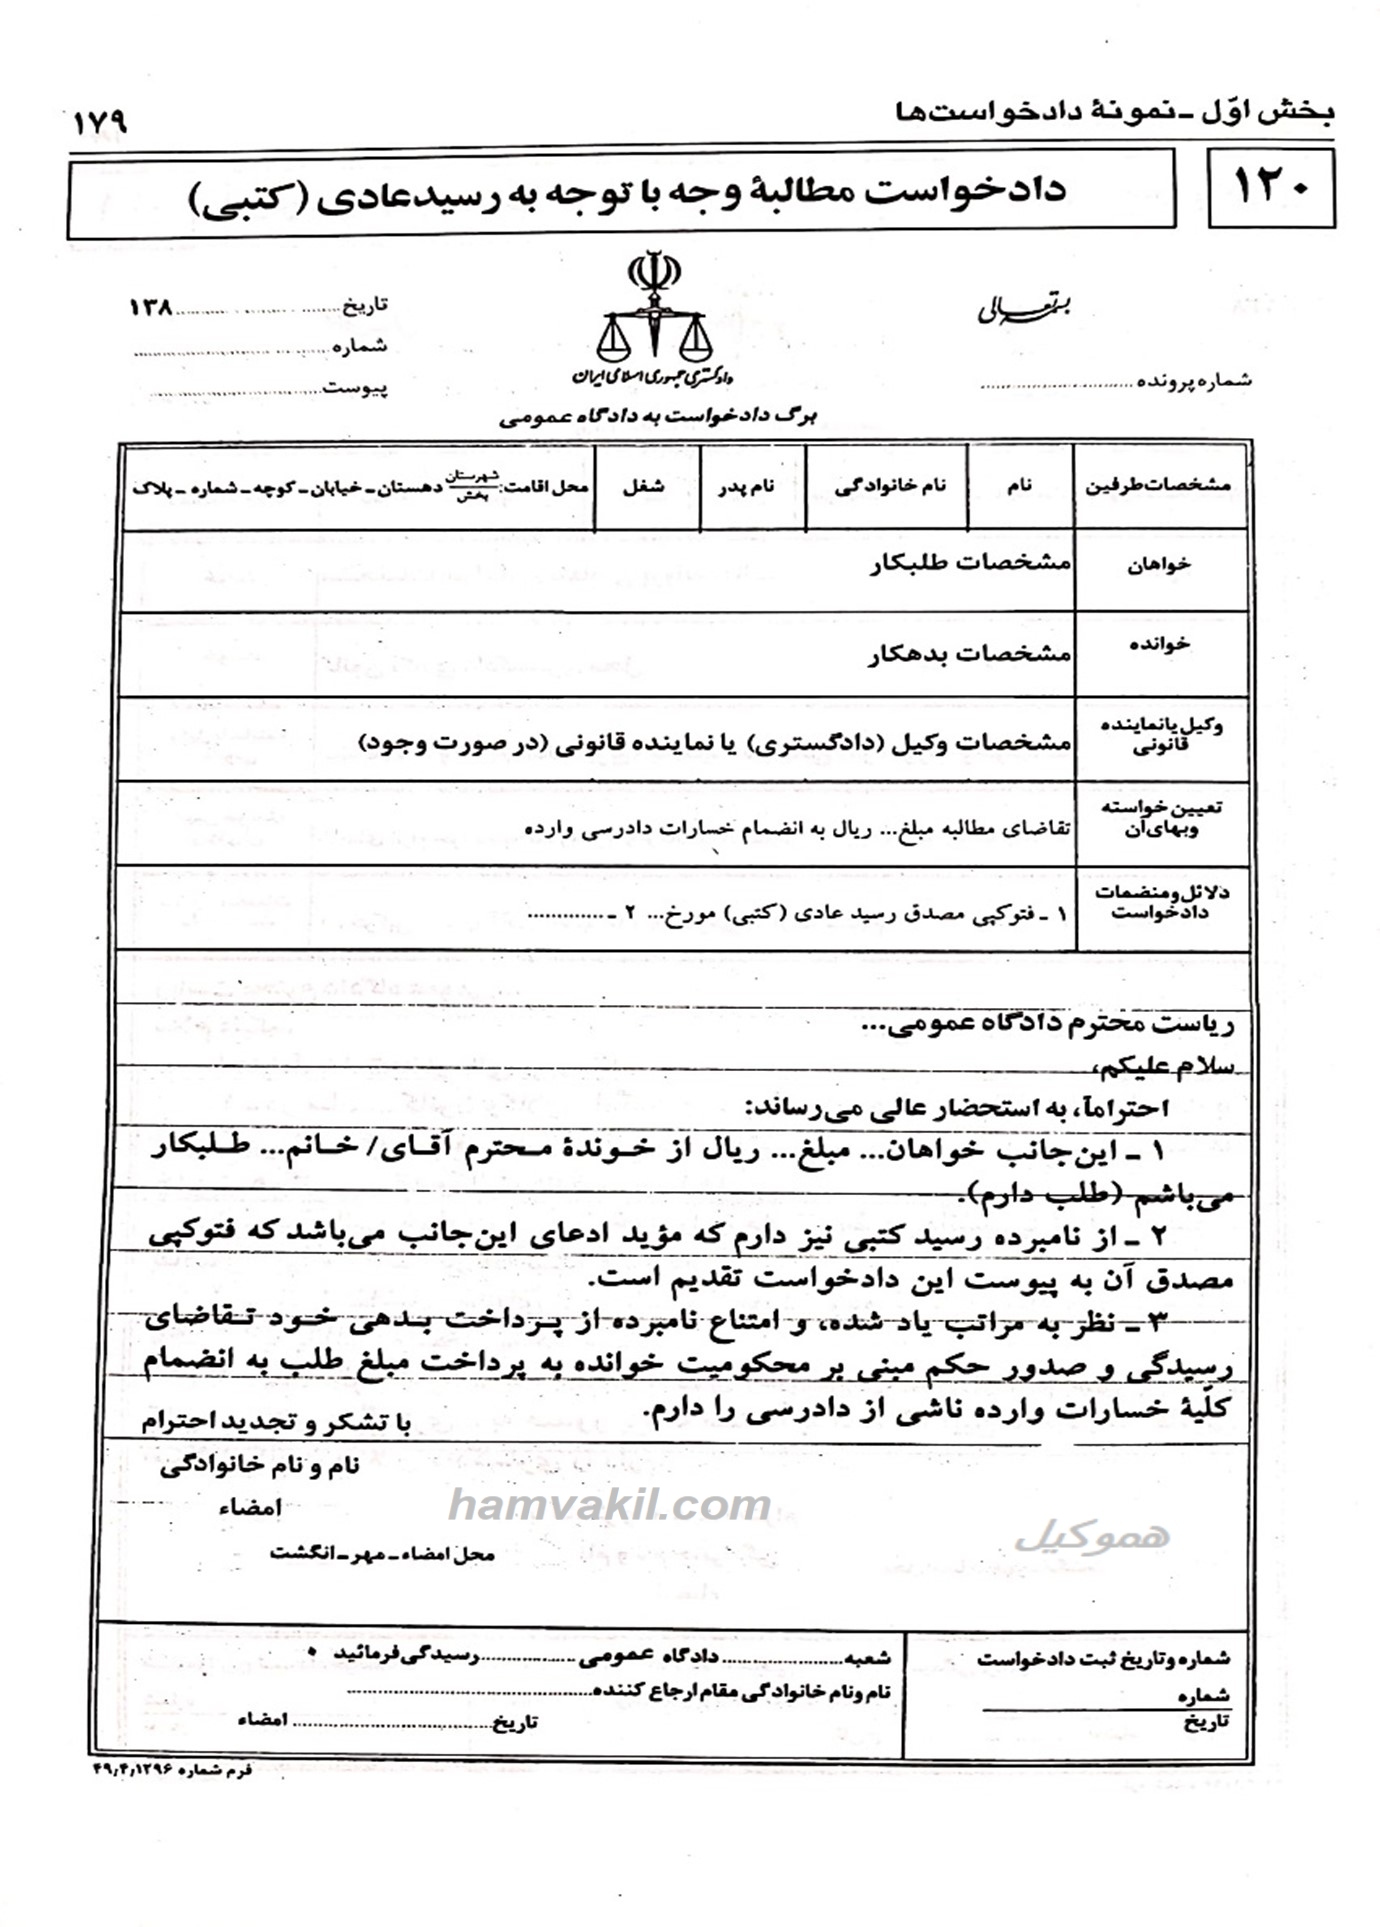 بخش اوّل ـ نمونهٔ دادخواست‌ها
۱۷۹
۱۲۰
دادخواست مطالبهٔ وجه با توجه به رسید عادی (کتبی)
بسمه تعالی
شماره پرونده ..........................
دادگستری جمهوری اسلامی ایران
تاریخ ............................ ۱۳۸
شماره ................................
پیوست ............................
برگ دادخواست به دادگاه عمومی
مشخصات طرفین
نام
نام خانوادگی
نام پدر
شغل
محل اقامت: شهرستان بخش دهستان ـ خیابان ـ کوچه ـ شماره ـ پلاک
خواهان
مشخصات طلبکار
خوانده
مشخصات بدهکار
وکیل یا نماینده
قانونی
مشخصات وکیل (دادگستری) یا نماینده قانونی (در صورت وجود)
تعیین خواسته
وبهای آن
تقاضای مطالبه مبلغ... ریال به انضمام خسارات دادرسی وارده
دلائل و منضمات
دادخواست
۱ ـ فتوکپی مصدق رسید عادی (کتبی) مورخ... ۲ ـ .............
ریاست محترم دادگاه عمومی...
سلام علیکم،
احتراماً، به استحضار عالی می‌رساند:
۱ ـ این‌جانب خواهان... مبلغ... ریال از خوندهٔ محترم آقای/ خانم... طلبکار
می‌باشم (طلب دارم).
۲ ـ از نامبرده رسید کتبی نیز دارم که مؤید ادعای این‌جانب می‌باشد که فتوکپی
مصدق آن به پیوست این دادخواست تقدیم است.
۳ ـ نظر به مراتب یاد شده، و امتناع نامبرده از پرداخت بدهی خود تقاضای
رسیدگی و صدور حکم مبنی بر محکومیت خوانده به پرداخت مبلغ طلب به انضمام
کلّیهٔ خسارات وارده ناشی از دادرسی را دارم.
با تشکر و تجدید احترام
نام و نام خانوادگی
امضاء
hamvakil.com
هموکیل
محل امضاء ـ مهر ـ انگشت
شماره و تاریخ ثبت دادخواست
شماره
تاریخ
شعبه ...................... دادگاه عمومی ................. رسیدگی فرمائید
نام و نام خانوادگی مقام ارجاع کننده ............................................
تاریخ ................................ امضاء
فرم شماره ۴۹٫۴٫۱۲۹۶